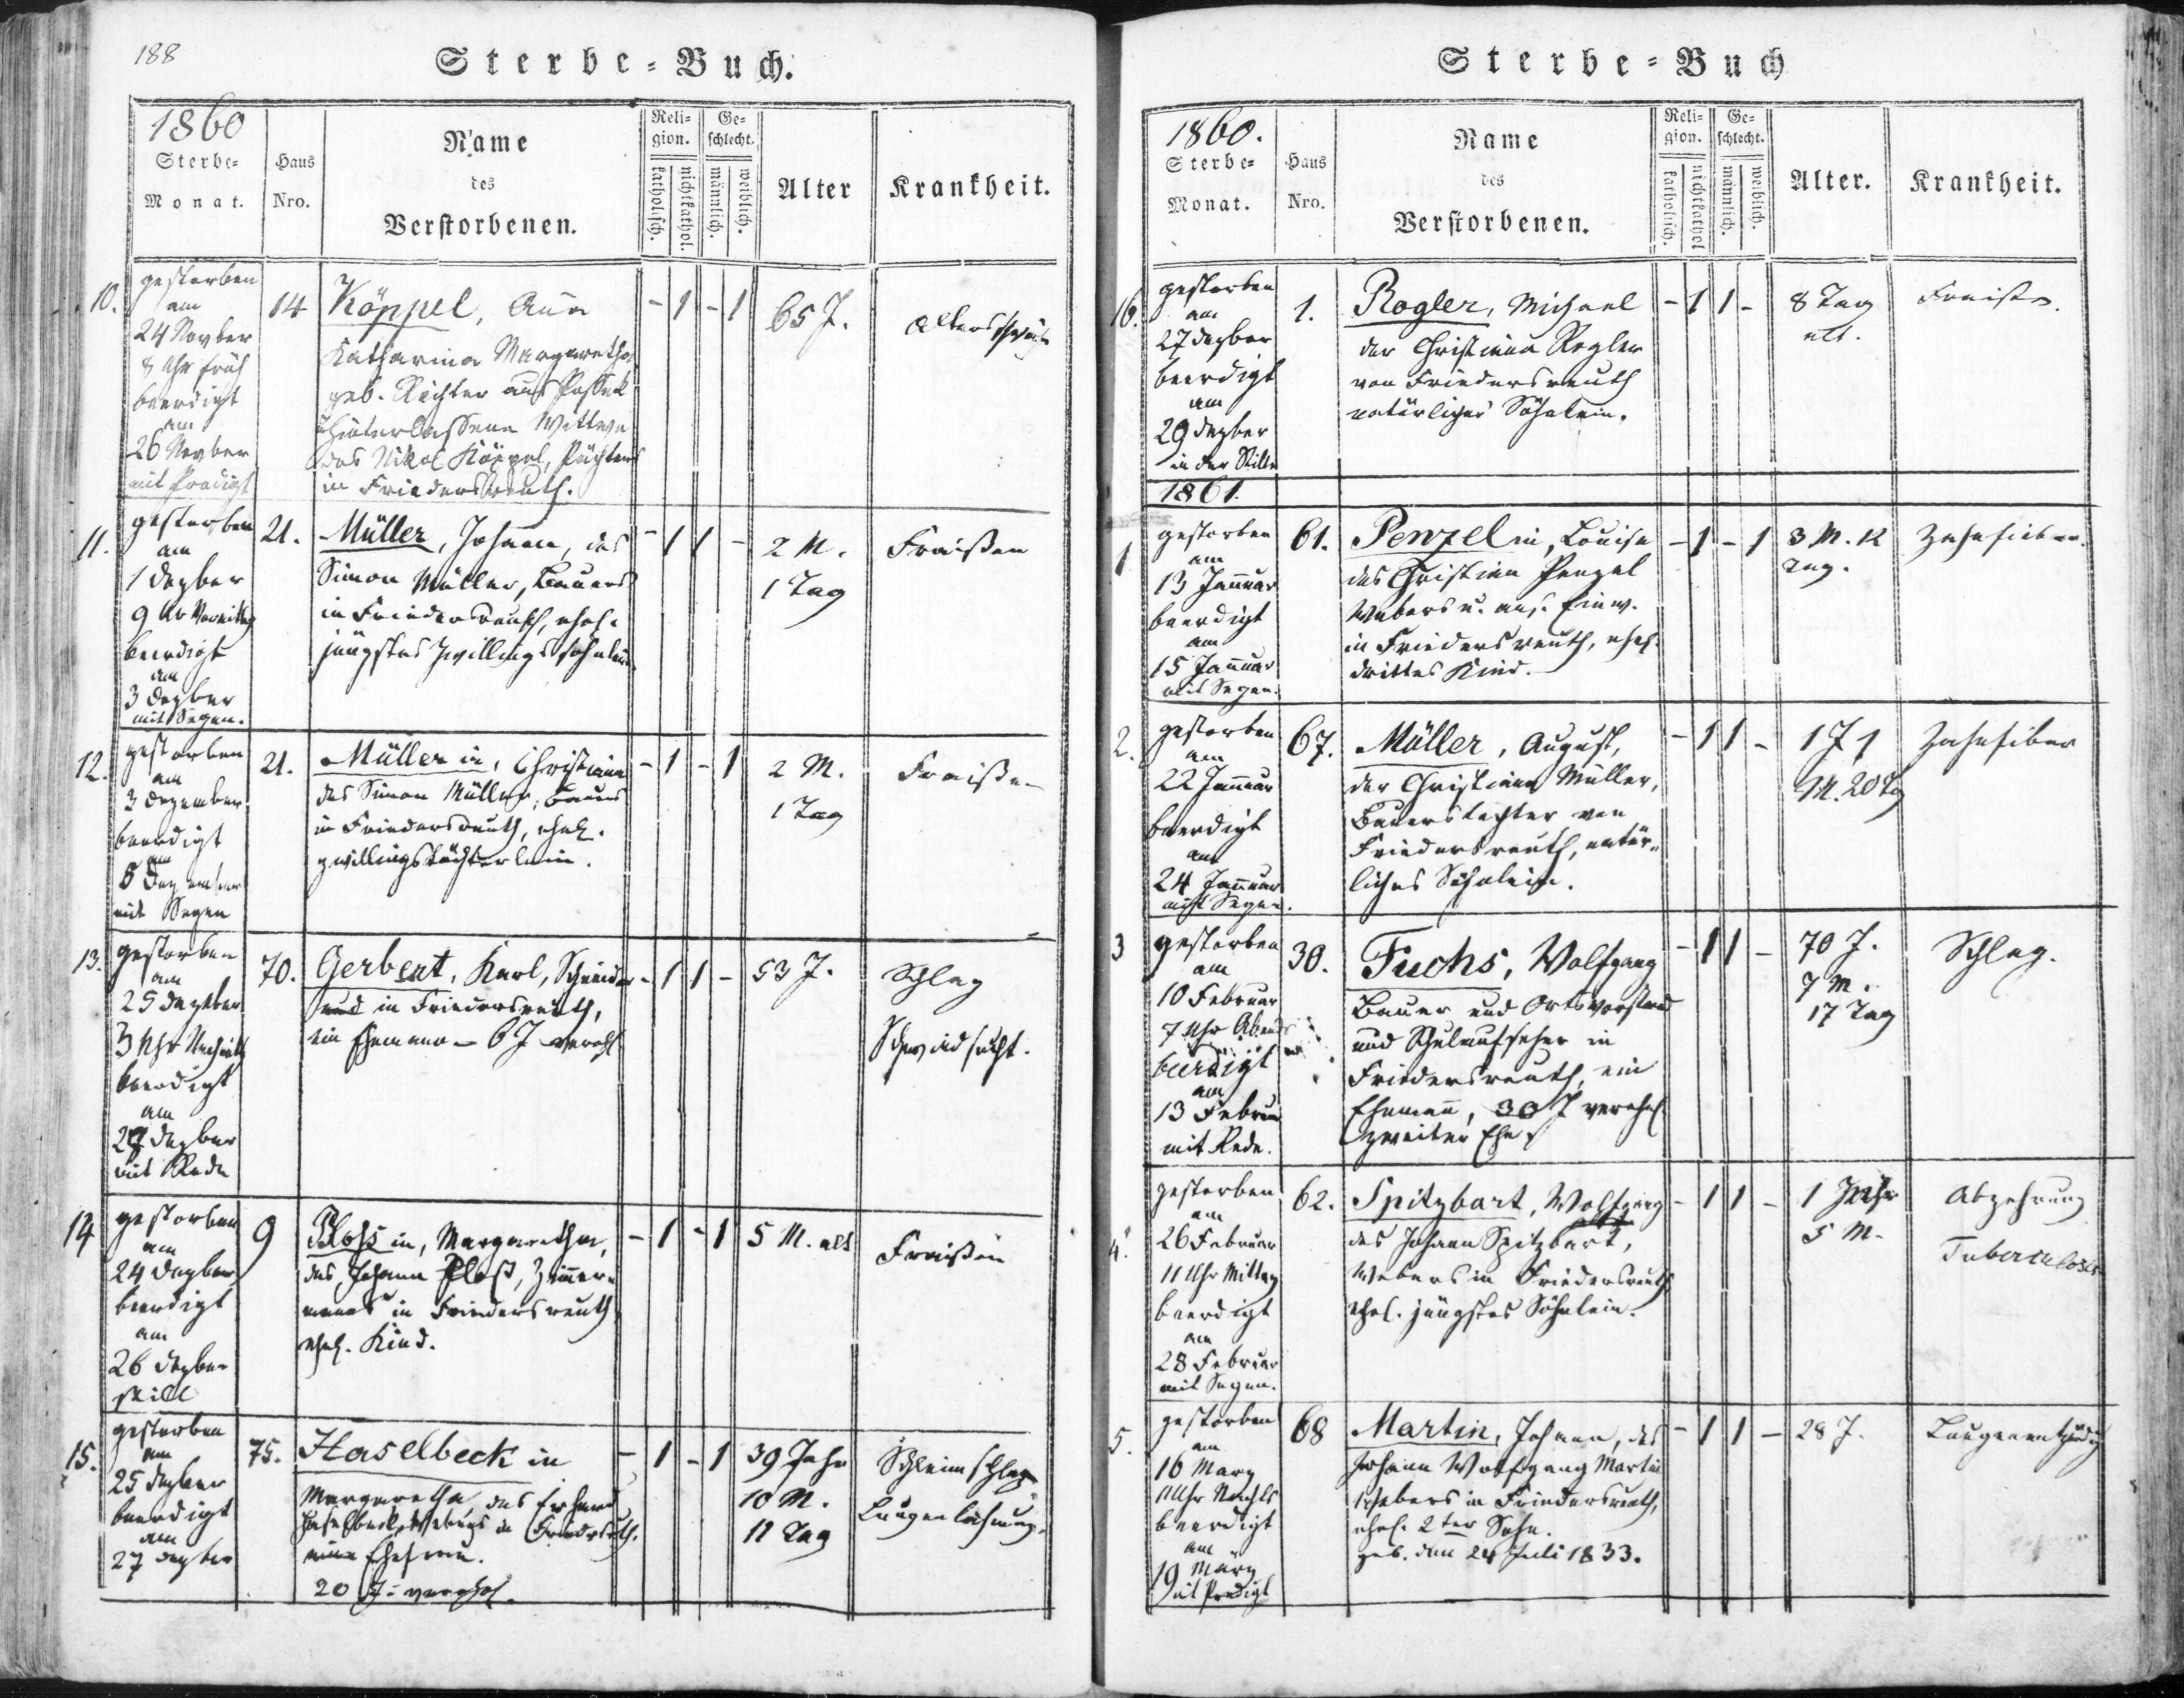 188
Sterbe-Buch.
1860
Sterbe-
Monat.
Haus
Nro.
Name
des
Verstorbenen.
Reli-
gion.
katholisch.
nichtkathol.
Ge-
schlecht.
männlich.
weiblich.
Alter
Krankheit.
10.
gestorben
am
24 Novber
8 Uhr früh
beerdigt
am
26 Novber
mit Predigt
14
Köppel, Anna
Katharina Margaretha
geb. Richter aus Posseck
hinterlassene Wittwe
des Nikol Köppel, Pächters
in Friedersreuth.
- 1 - 1
65 J.
Altersschwäche
11.
gestorben
am
1 Dezber
9 Uhr Vormittag
beerdigt
am
3 Dezber
mit Segen.
21.
Müller, Johann, des
Simon Müller, Bauers
in Friedersreuth, ehel.
jüngstes Zwillingssöhnlein
- 1 1 -
2 M.
1 Tag
Fraißen
12.
gestorben
am
3 Dezember
beerdigt
am
5 Dezember
mit Segen
21.
Müller in, Christiana
des Simon Müller, Bauers
in Friedersreuth, ehel.
Zwillingstöchterlein.
- 1 - 1
2 M.
1 Tag
Fraißen
13.
gestorben
am
25 Dezber
3 Uhr Nachmittg
beerdigt
am
27 Dezber
mit Rede
70.
Gerbert, Karl, Schneider
in Friedersreuth,
ein Ehemann 6 J verehl
- 1 1 -
53 J.
Schlag
Schwindsucht.
14
gestorben
am
24 Dezber
beerdigt
am
26 Dezber
still
9
Ploß in, Margaretha,
des Johann Ploß, Zimmer-
manns in Friedersreuth
ehel. Kind.
- 1 - 1
5 M. alt
Fraißen
15.
gestorben
am
25 Dezber
beerdigt
am
27 Dezber
75.
Haselbeck in
Margaretha, des Erhard
Haselbeck, Webers in Friedersreuth.
eine Ehefrau.
20 J. verehel.
- 1 - 1
39 Jahr
10 M.
11 Tag
Schleimschlag
Lungenlähmung.
Sterbe-Buch
1860.
Sterbe-
Monat.
Haus
Nro.
Name
des
Verstorbenen.
Reli-
gion.
katholisch.
nichtkathol
Ge-
schlecht.
männlich.
weiblich.
Alter.
Krankheit.
16.
gestorben
am
27 Dezber
beerdigt
am
29 Dezber
in der Stille
1.
Rogler, Michael
der Christiana Rogler
von Friedersreuth
natürliches Söhnlein.
- 1 1 -
8 Tag
alt.
Fraißen.
1861.
1
gestorben
am
13 Januar
beerdigt
am
15 Januar
mit Segen.
61.
Penzel in, Louise
des Christian Penzel
Webers u. ans. Einw.
in Friedersreuth, ehel.
drittes Kind.
- 1 - 1
3 M. 12
Tag.
Zahnfieber.
2.
gestorben
am
22 Januar
beerdigt
am
24 Januar
mit Segen.
67.
Müller, August,
der Christiana Müller,
Bauerstochter von
Friedersreuth, natür-
liches Söhnlein.
- 1 1 -
1 J 1
M. 20 Tg
Zahnfieber
3
gestorben
am
10 Februar
7 Uhr Abends
beerdigt
am
13 Februar
mit Rede.
30.
Fuchs, Wolfgang
Bauer und Ortsvorstand
und Schulaufseher in
Friedersreuth, ein
Ehemann, 30 J verehel
zweiter Ehe
- 1 1 -
70 J.
7 M.
17 Tag
Schlag.
4.
gestorben
am
26 Februar
11 Uhr Mittag
beerdigt
am
28 Februar
mit Segen.
62.
Spitzbart, Wolfgang
des Johann Spitzbart,
Webers in Friedersreuth
ehel. jüngstes Söhnlein.
- 1 1 -
1 Jahr
5 M.
Abzehrung
Tuberculose
5.
gestorben
am
16 März
11 Uhr Nachts
beerdigt
am
19 März
mit Predigt
68
Martin, Johann, des
Johann Wolfgang Martin
Webers in Friedersreuth,
ehel. 2ter Sohn.
geb. den 24 Juli 1833.
- 1 1 -
28 J.
Lungenentzündg